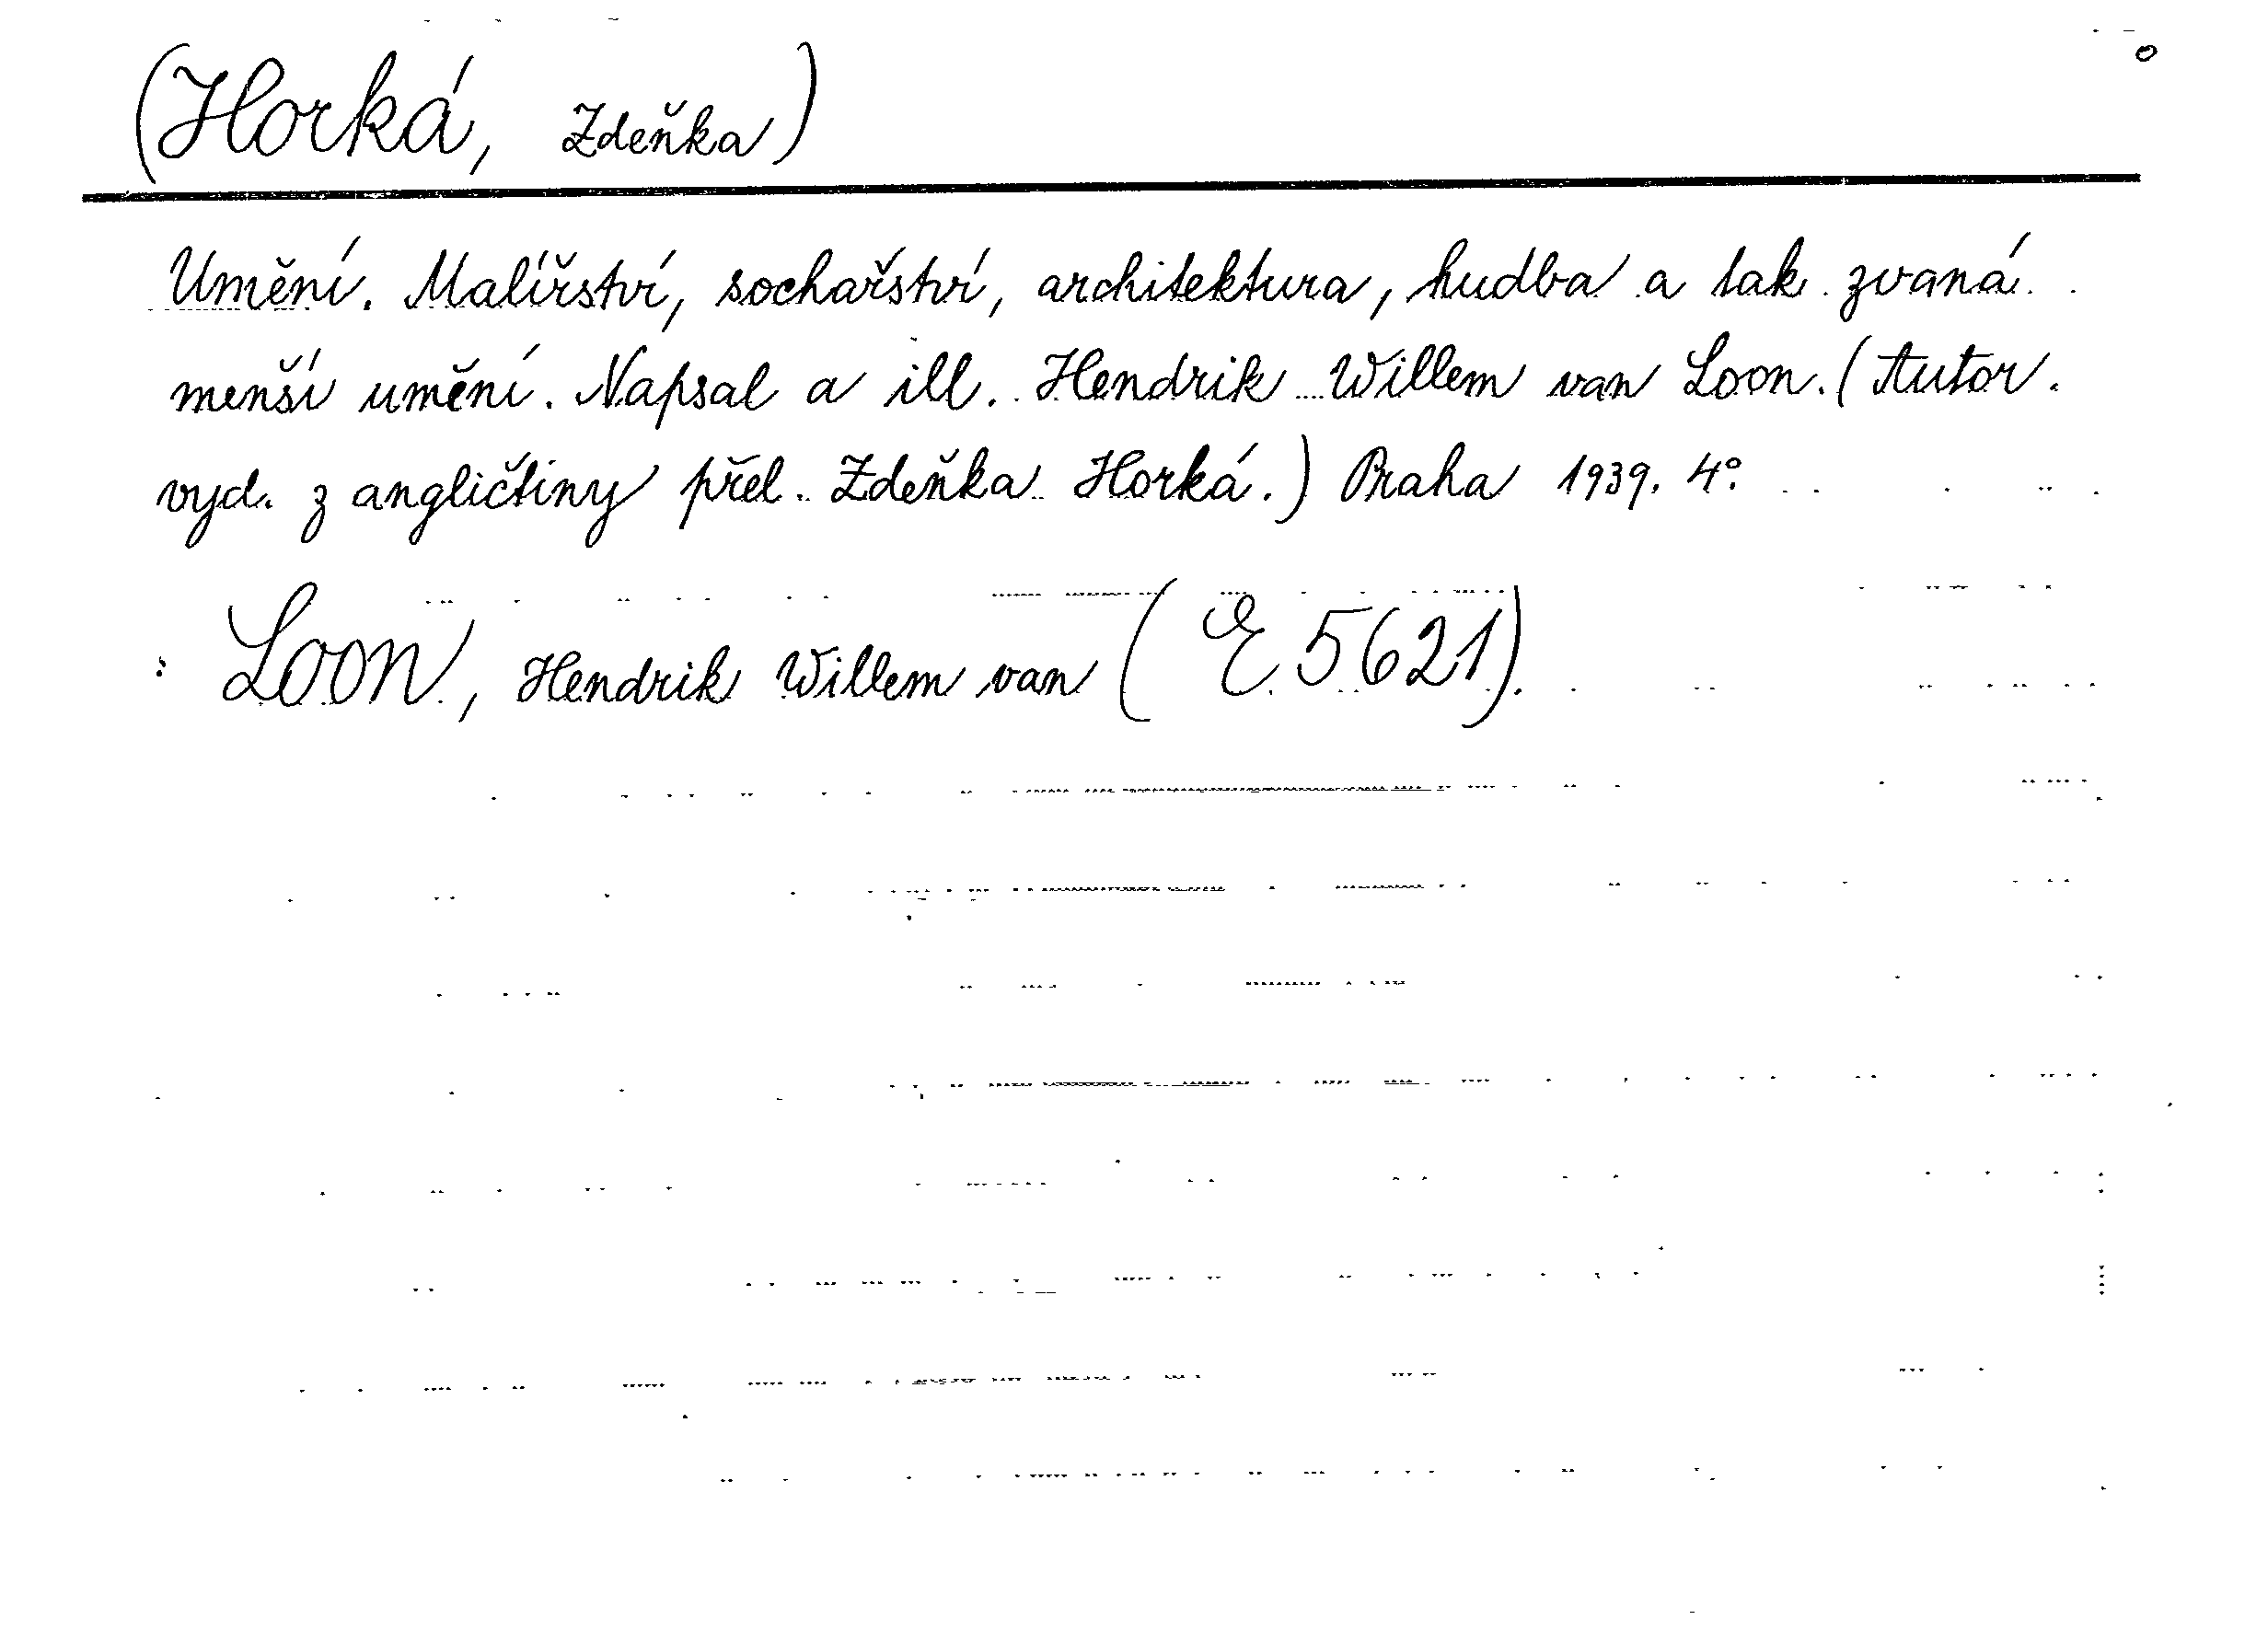 (Horká, Zdeňka)
Umění. Malířství, sochařství, architektura, hudba a tak zvaná
menší umění. Napsal a ill. Hendrik Willem van Loon. (Autor.
vyd. z angličtiny přel. Zdeňka Horká.) Praha 1939. 4°.
: Loon, Hendrik Willem van (E 5621).